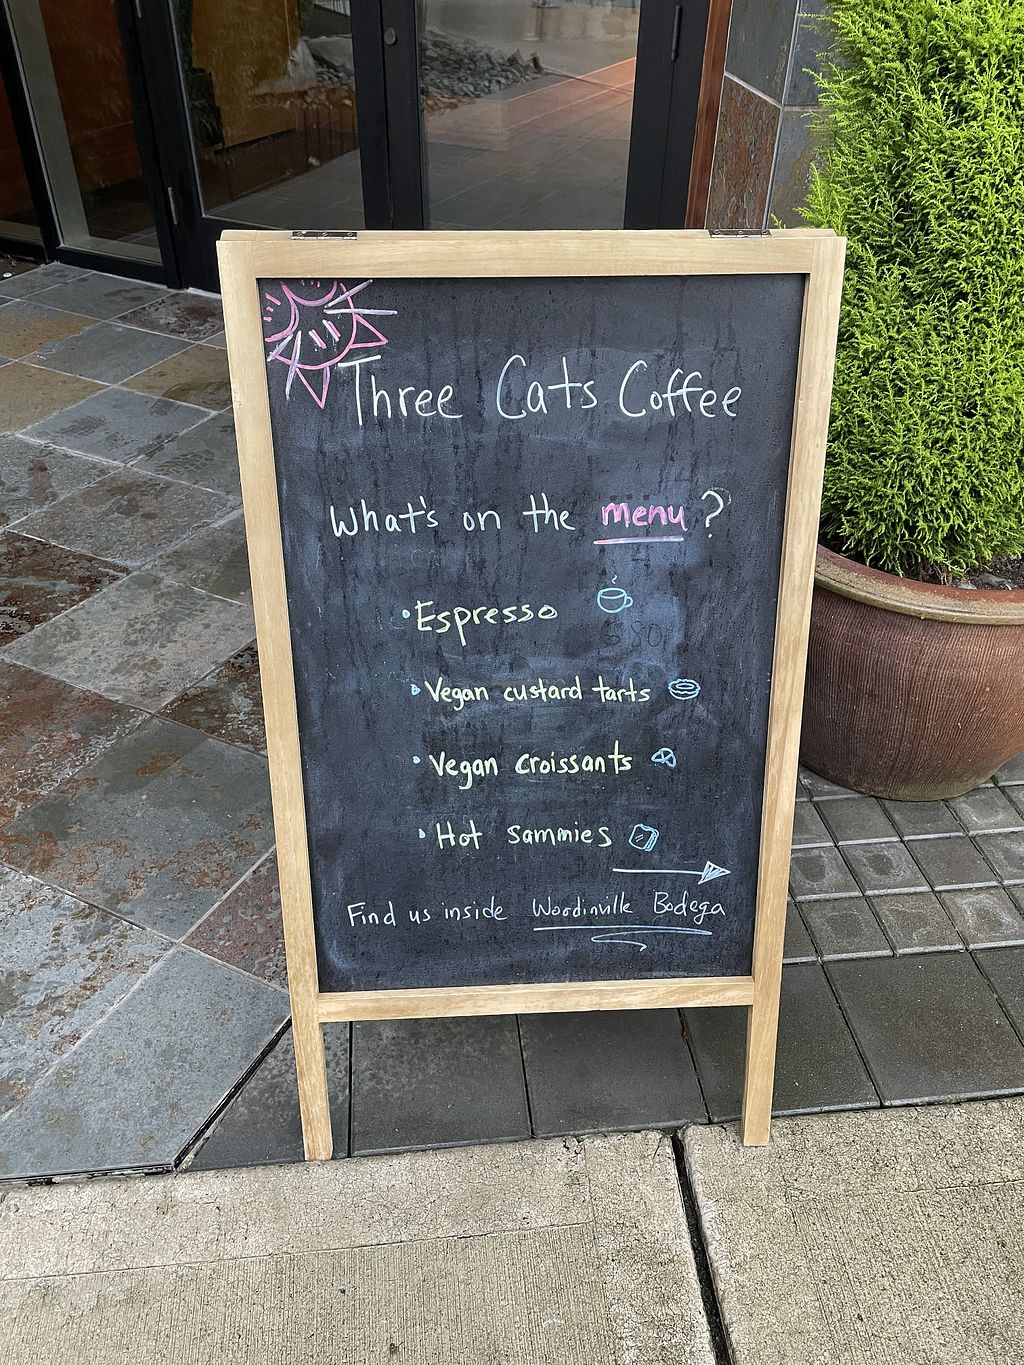 Three Cats Coffee
What's on the menu?
• Espresso
• Vegan custard tarts
• Vegan croissants
• Hot sammies
Find us inside Woodinville Bodega